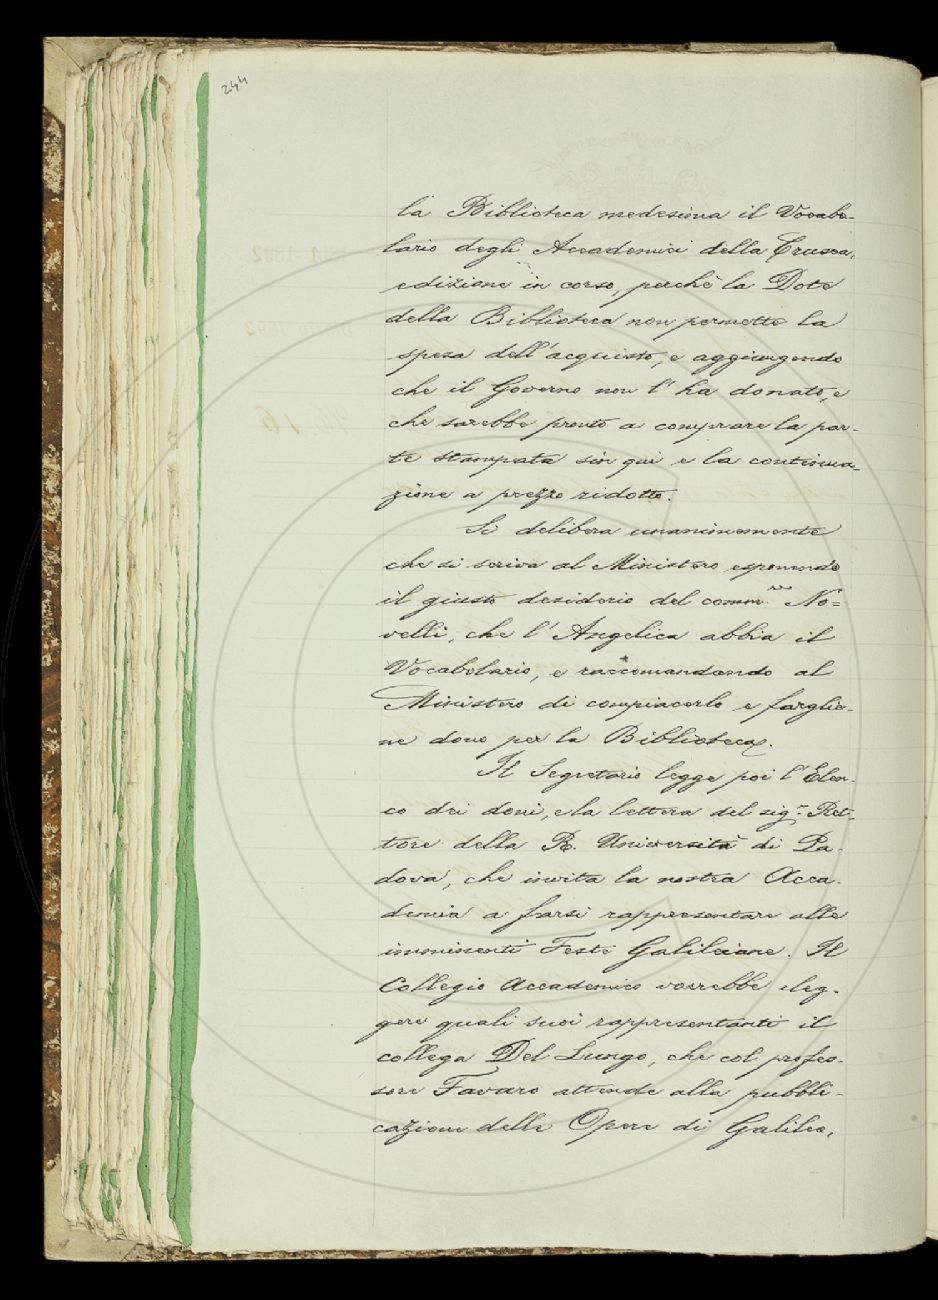 244
la Biblioteca medesima il Vocabo-
lario degli Accademici della Crusca,
edizione in corso, perchè la Dote
della Biblioteca non permette la
spesa dell'acquisto, e aggiungendo
che il Governo non l'ha donato, e
che sarebbe pronto a comprare la par-
te stampata sin qui e la continua-
zione a prezzo ridotto.
Si delibera unanimemente
che si scriva al Ministero esponendo
il giusto desiderio del comm.re No=
velli, che l'Angelica abbia il
Vocabolario, e raccomandando al
Ministero di compiacerlo e farglie-
ne dono per la Biblioteca.
Il Segretario legge poi l'Elen-
co dei doni, e la lettera del sig.r Ret-
tore della R. Università di Pa-
dova, che invita la nostra Acca-
demia a farsi rappresentare alle
imminenti Feste Galileiane. Il
Collegio Accademico vorrebbe eleg-
gere quali suoi rappresentanti il
collega Del Lungo, che col profes-
sore Favaro attende alla pubbli-
cazione delle Opere di Galileo,